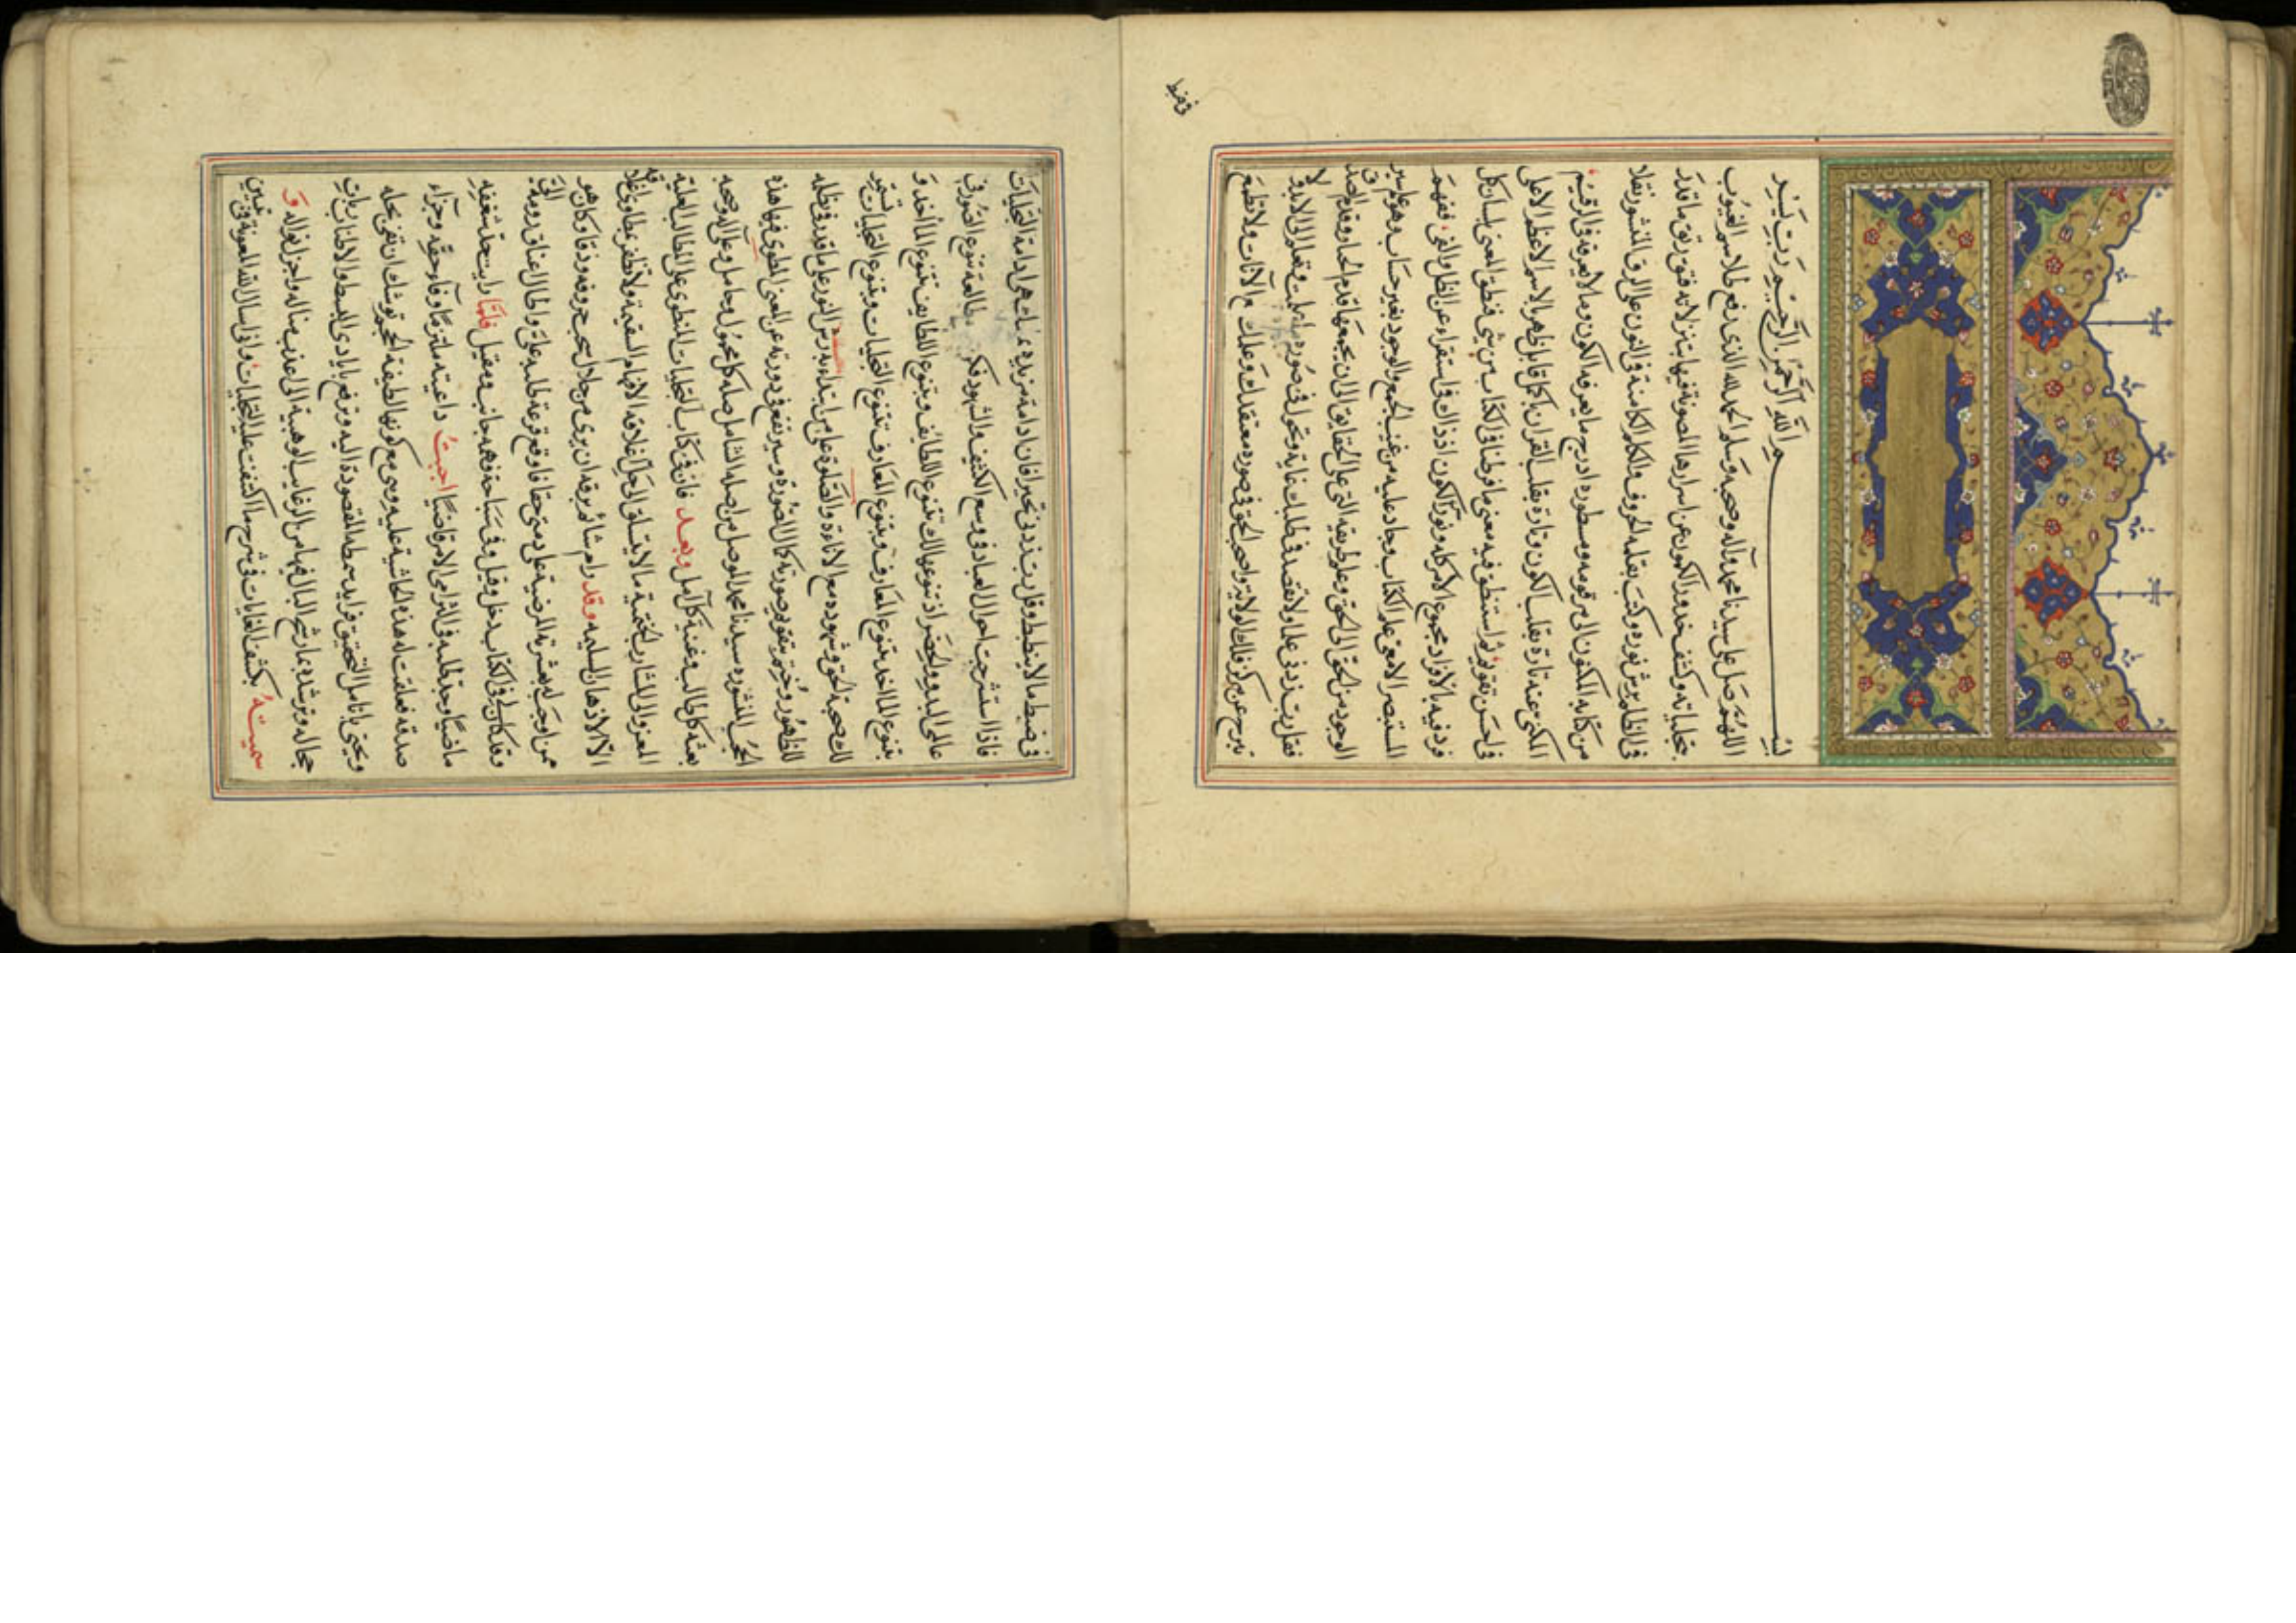 بسم الله الرحمن الرحيم رب يسر
اللهم صل على سيدنا محمد وآله وصحبه وسلم الحمد لله الذي رفع طلاسم الغيوب
بتجلياته وكشف خدور الكمون عن اسرارها المصونة فيها بتنزلاته ففتق رتق ما قدر
في الظلم برش نوره وكتب بقلمه الحروف والكلم الكامنة في النون على الرق المنشور نقلا
من كتابه المكنون الى مرقومه ومسطوره ادرج ما يعرفه الكون وما لا يعرفه في الرقيم
المكنى عنه تارة بقلب الكون وتارة بقلب القران بكل قابل ظهر بالاسم الاعظم الاعلى
في احسن تقويم ثم استنطق فيه معنى ما فرطنا في الكتاب من شئ فنطق المعنى بلسان كل
فرد فيه بالافراد مجموع الامر كله ونور الكون اذ ذاك في استقراء عن الظل والفئ ففهم
المستبصر الامعى علم الكتاب وجاد عليه من غيب الجمع والوجود بغير حساب وهو على سير
الوجود من الحق الى الحق وعلم طريقه التي على الحقايق الى ان يجمعها قدم الجبار وقدم الصدق
فقل رب زدني علما ولا تقصد في طلبك غاية وتحول في صورة ما علمت وتعلم الى الابد ولا
تبرح عن مركز فلك الولاية واصحب الحق في صورة معتقدك وعملك مع الآنات ولا تطمع
في ضبط
في ضبط ما لا ينضبط وقل رب زدني تحيرا فان دامة مزيدك هي ادامة التجليات
فاذا استشرحت احوال العباد في وسع الكشف والشهود فكن مطالعة تنوع الصور في
عالمي البدو والحضر اذ تنوعها لك تنوع اللطائف وبتنوع اللطايف تتنوع المآخذ و
بتنوع المآخذ تتنوع المعارف وبتنوع المعارف تتنوع التجليات وبتنوع التجليات تستمر
لك صحبة الحق وشهوده مع الاناءة والصلوة على من ابتداء به رس النور على ما قدر في ظله
للظهور وختم بتقويم صورته كمال الصورة وسير نفخ في دورته عن المعنى المطوى فيها هذه
الحجب المنشوره سيدنا محمد الموصل من اصله الشامل صله كل محمول وحامل وعلى آله وصحبه
بعثه كل طالب وغنية كل آمل وبعد فان في كتاب التجليات المنطوى على المطالب العلية
المعزو الى المشارب الختمية ما لا يتسلق الى حل اغلاقه الافهام السقيمة ولا تظفر بمطاوى اعلاقه
الا الاذهان السليمه وقد رام شائم برقه ان يرى من خلال سحب حروفه ودقا وكان هو
ممن اوجب له بعشرته المرضية على ذمتي حقا فاوقع قرعة طلبه على واطال اعناق رومه الي
وقد كان لي في الكتاب دخل وقيل وفي سباحة فهمه جانب ومقيل فلما رايت جد شغفه
ماضيا وحد طلبه في التزامي الامر قاضيا اجبت داعيته ملتزما وفآء حقه وجزاء
صدقه فعلقت له هذه الحاشية عليه وهي مع كونها لطيفة الحجم توشك ان تفي بحله
ويجتني بانامل التحقيق فرايد سمطه المقصودة اليه وترفع بايادي البسط والاطناب رايات
جماله وترشده بما رشح البال فيها من الرغايب الوهبية الى اعذب مناله واجزل نواله و
سميته بكشف الغايات في شرح ما اكتنفت عليه التجليات واني اسال الله المعونة في تعيين